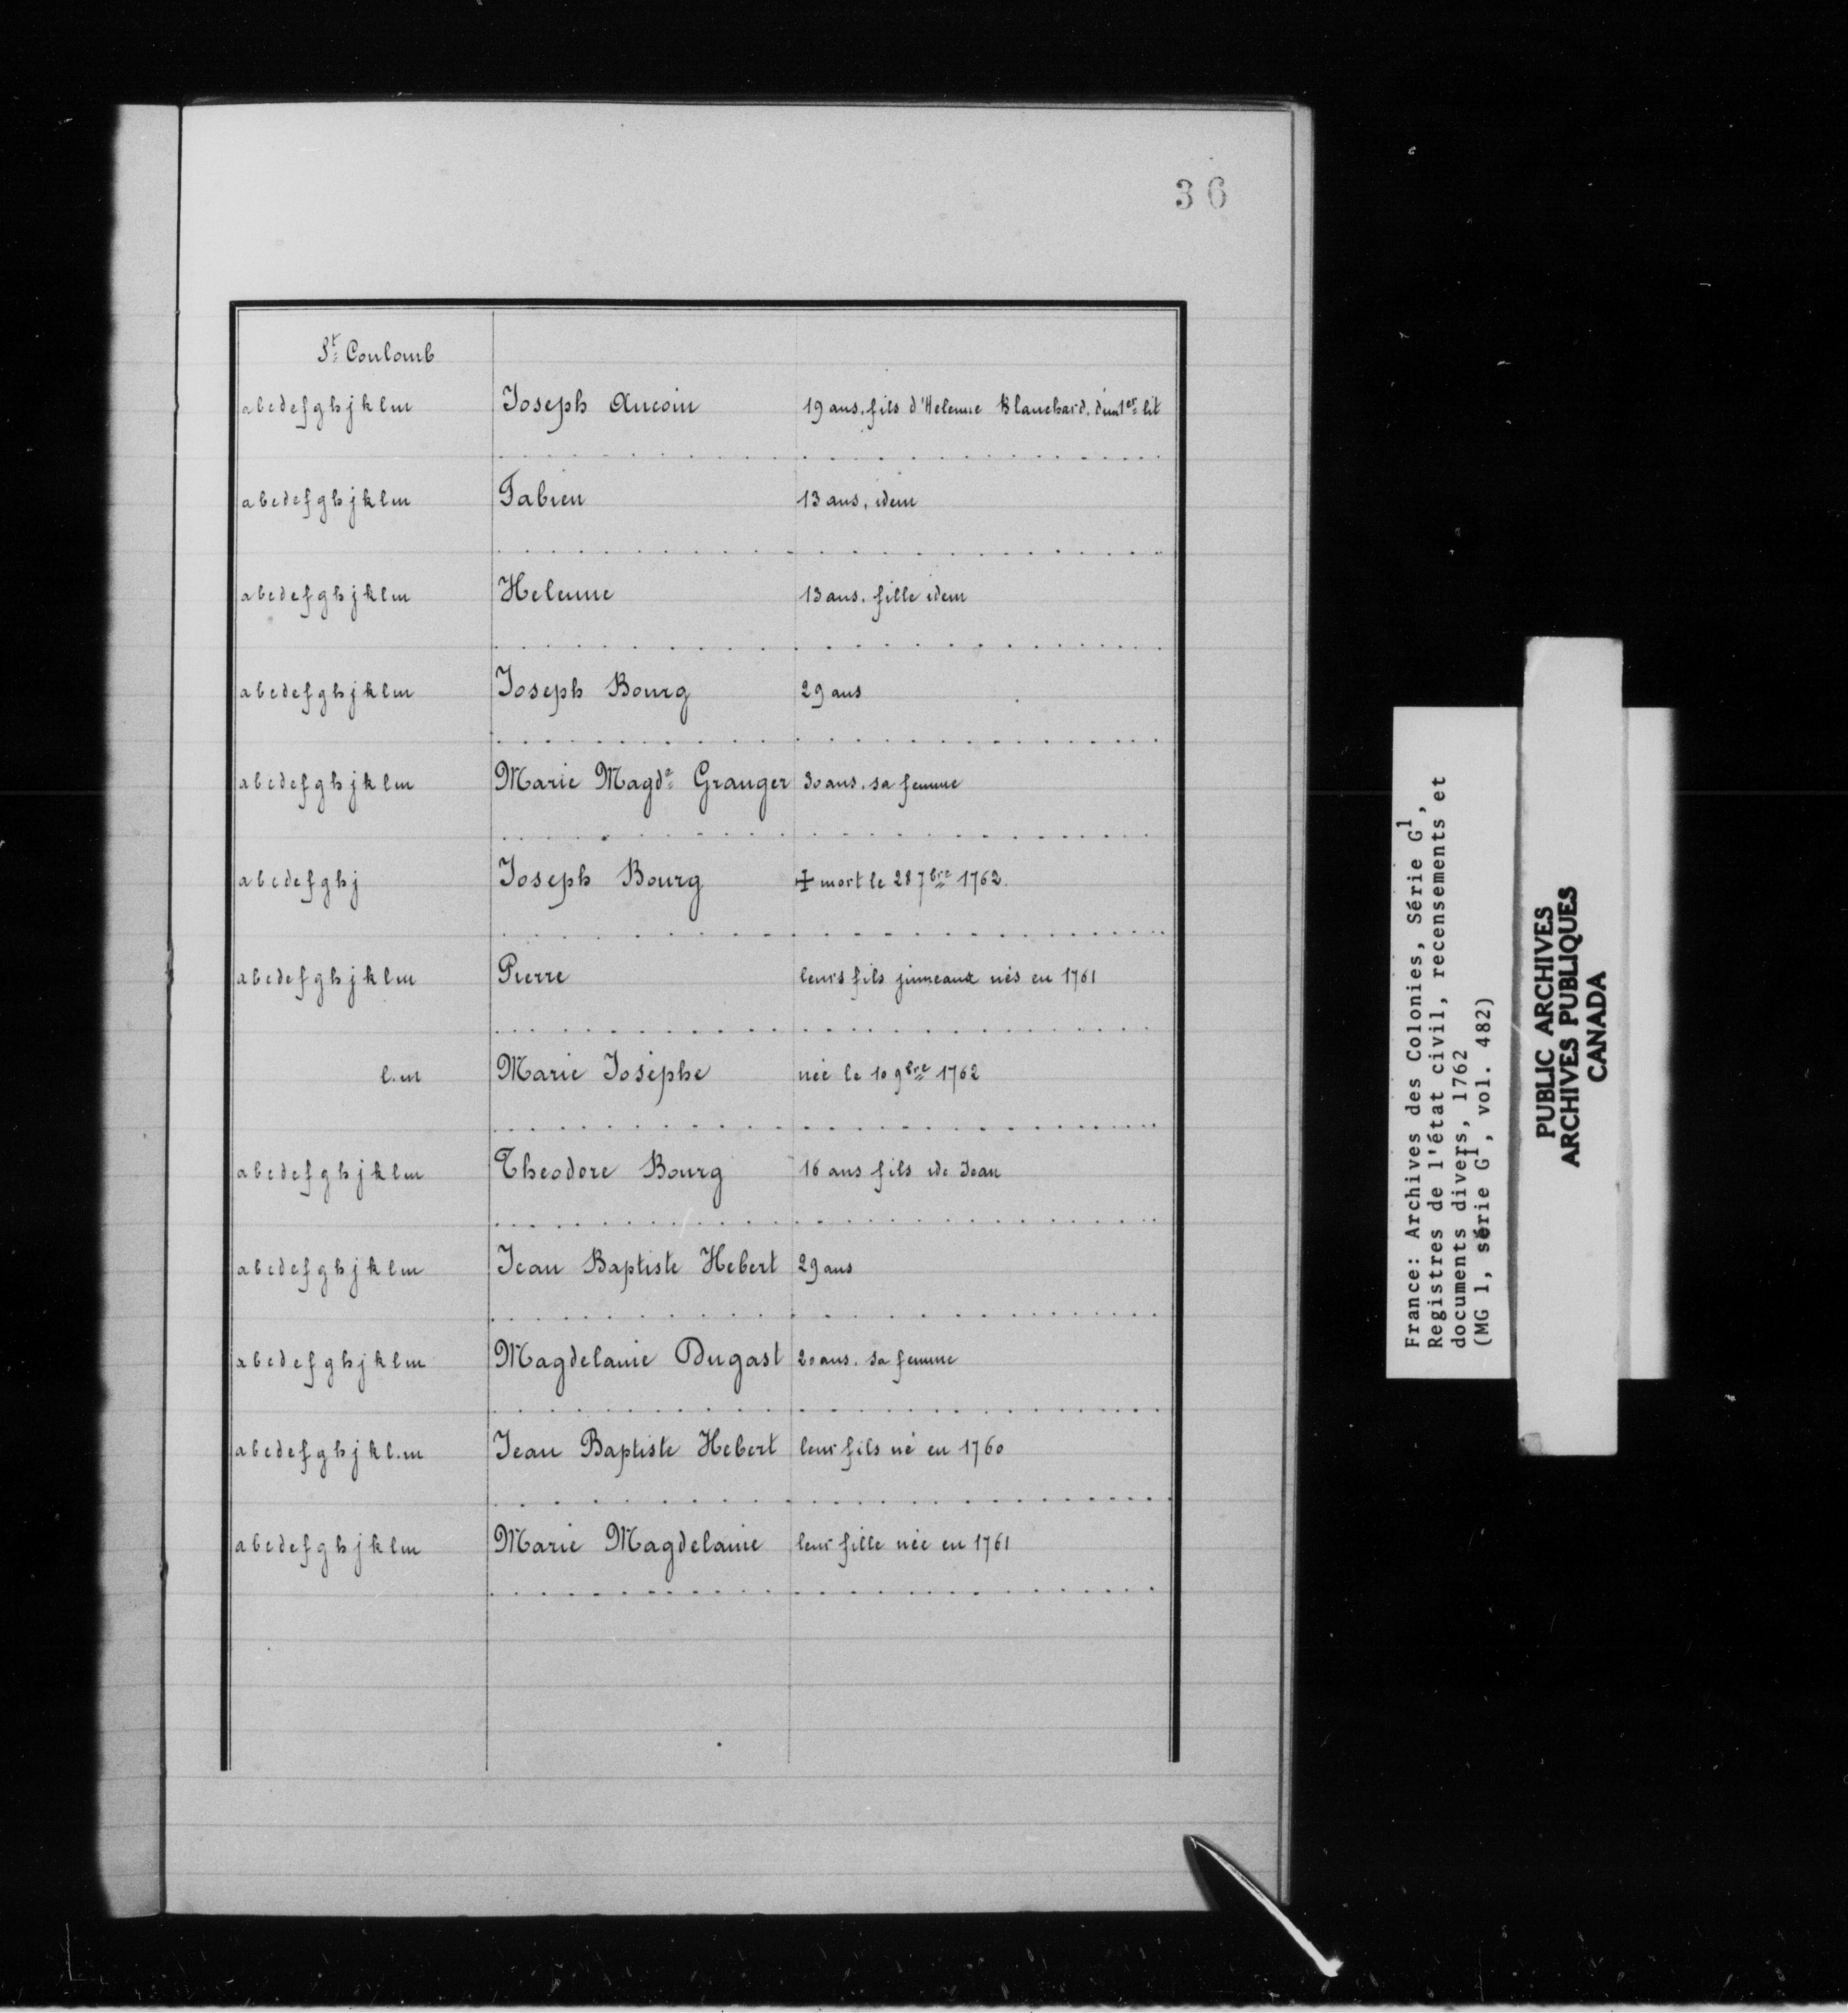 36
St Coulomb
abcdefghjklm Joseph Aucoin 19 ans. fils d'Helenne Blanchard. d'un 1er lit
abcdefghjklm Fabien 13 ans, idem
abcdefghjklm Helenne 13 ans. fille idem
abcdefghjklm Joseph Bourg 29 ans
abcdefghjklm Marie Magde Granger 30 ans. sa femme
abcdefghj Joseph Bourg ✝ mort le 28 7bre 1762.
abcdefghjklm Pierre leurs fils jumeaux nés en 1761
l.m Marie Josèphe née le 10 9bre 1762
abcdefghjklm Theodore Bourg 16 ans fils de Jean
abcdefghjklm Jean Baptiste Hebert 29 ans
abcdefghjklm Magdelaine Dugast 20 ans. sa femme
abcdefghjkl.m Jean Baptiste Hebert leur fils né en 1760
abcdefghjklm Marie Magdelaine leur fille née en 1761
France: Archives des Colonies, Série G1,
Registres de l'état civil, recensements et
documents divers, 1762
(MG 1, série G1, vol. 482)
PUBLIC ARCHIVES
ARCHIVES PUBLIQUES
CANADA